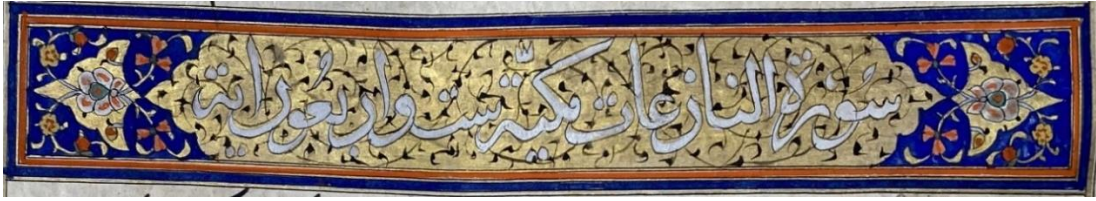 سورة النازعات مكية ست واربعون اية